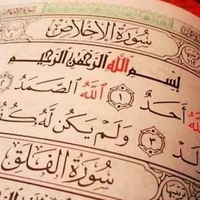 سُورَةُ الْإِخْلَاصِ
بِسْمِ اللَّهِ الرَّحْمَٰنِ الرَّحِيمِ
أَحَدٌ ١ اللَّهُ الصَّمَدُ
لَدْ ٣ وَلَمْ يَكُن لَّهُ
سُورَةُ الْفَلَقِ